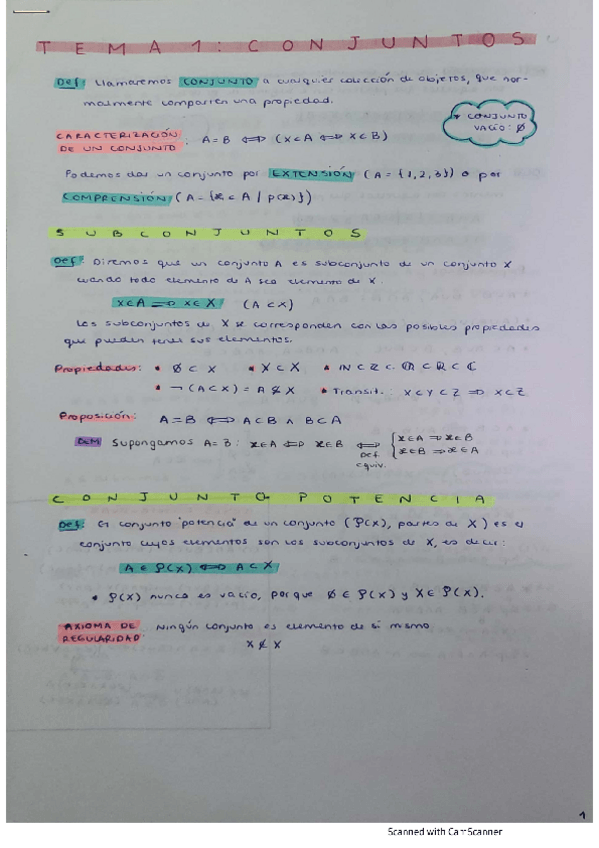 TEMA 1: CONJUNTOS
Def: Llamaremos CONJUNTO a cualquier colección de objetos, que nor-
malmente comparten una propiedad.
* CONJUNTO
VACÍO: ∅
CARACTERIZACIÓN
DE UN CONJUNTO: A = B ⟺ (x∈A ⟺ x∈B)
Podemos dar un conjunto por EXTENSIÓN (A = {1,2,3}) o por
COMPRENSIÓN (A = {x ∈ A / p(x)})
SUBCONJUNTOS
Def: Diremos que un conjunto A es subconjunto de un conjunto X
cuando todo elemento de A sea elemento de X.
x∈A ⟹ x∈X (A ⊂ X)
Los subconjuntos de X se corresponden con las posibles propiedades
que pueden tener sus elementos.
Propiedades: • ∅ ⊂ X • X ⊂ X • ℕ ⊂ ℤ ⊂ ℚ ⊂ ℝ ⊂ ℂ
• ¬(A ⊂ X) = A ⊄ X • Transit.: X ⊂ Y ⊂ Z ⟹ X ⊂ Z
Proposición: A = B ⟺ A ⊂ B ∧ B ⊂ A
DEM Supongamos A = B: x∈A ⟺ x∈B ⟺ Def. equiv. { x∈A ⟹ x∈B
x∈B ⟹ x∈A
CONJUNTO POTENCIA
Def: El conjunto "potencia" de un conjunto (P(X), partes de X) es el
conjunto cuyos elementos son los subconjuntos de X, es decir:
A ∈ P(X) ⟺ A ⊂ X
• P(X) nunca es vacío, porque ∅ ∈ P(X) y X ∈ P(X).
AXIOMA DE
REGULARIDAD: Ningún conjunto es elemento de sí mismo
X ∉ X
1
Scanned with CamScanner